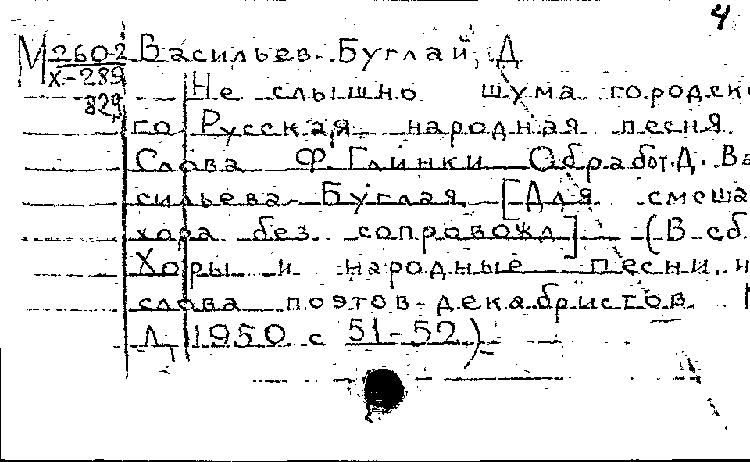 4
М 2602 Васильев-Буглай, Д
х-289 Не слышно шума городско
829
го Русская народная песня
Слова Ф. Глинки Обработ. Д. Ва
сильева-Буглая [Для смеша
хора без сопровожд] (В сб
Хоры и народные песни н
слова поэтов-декабристов. М
Л, 1950 с 51-52)